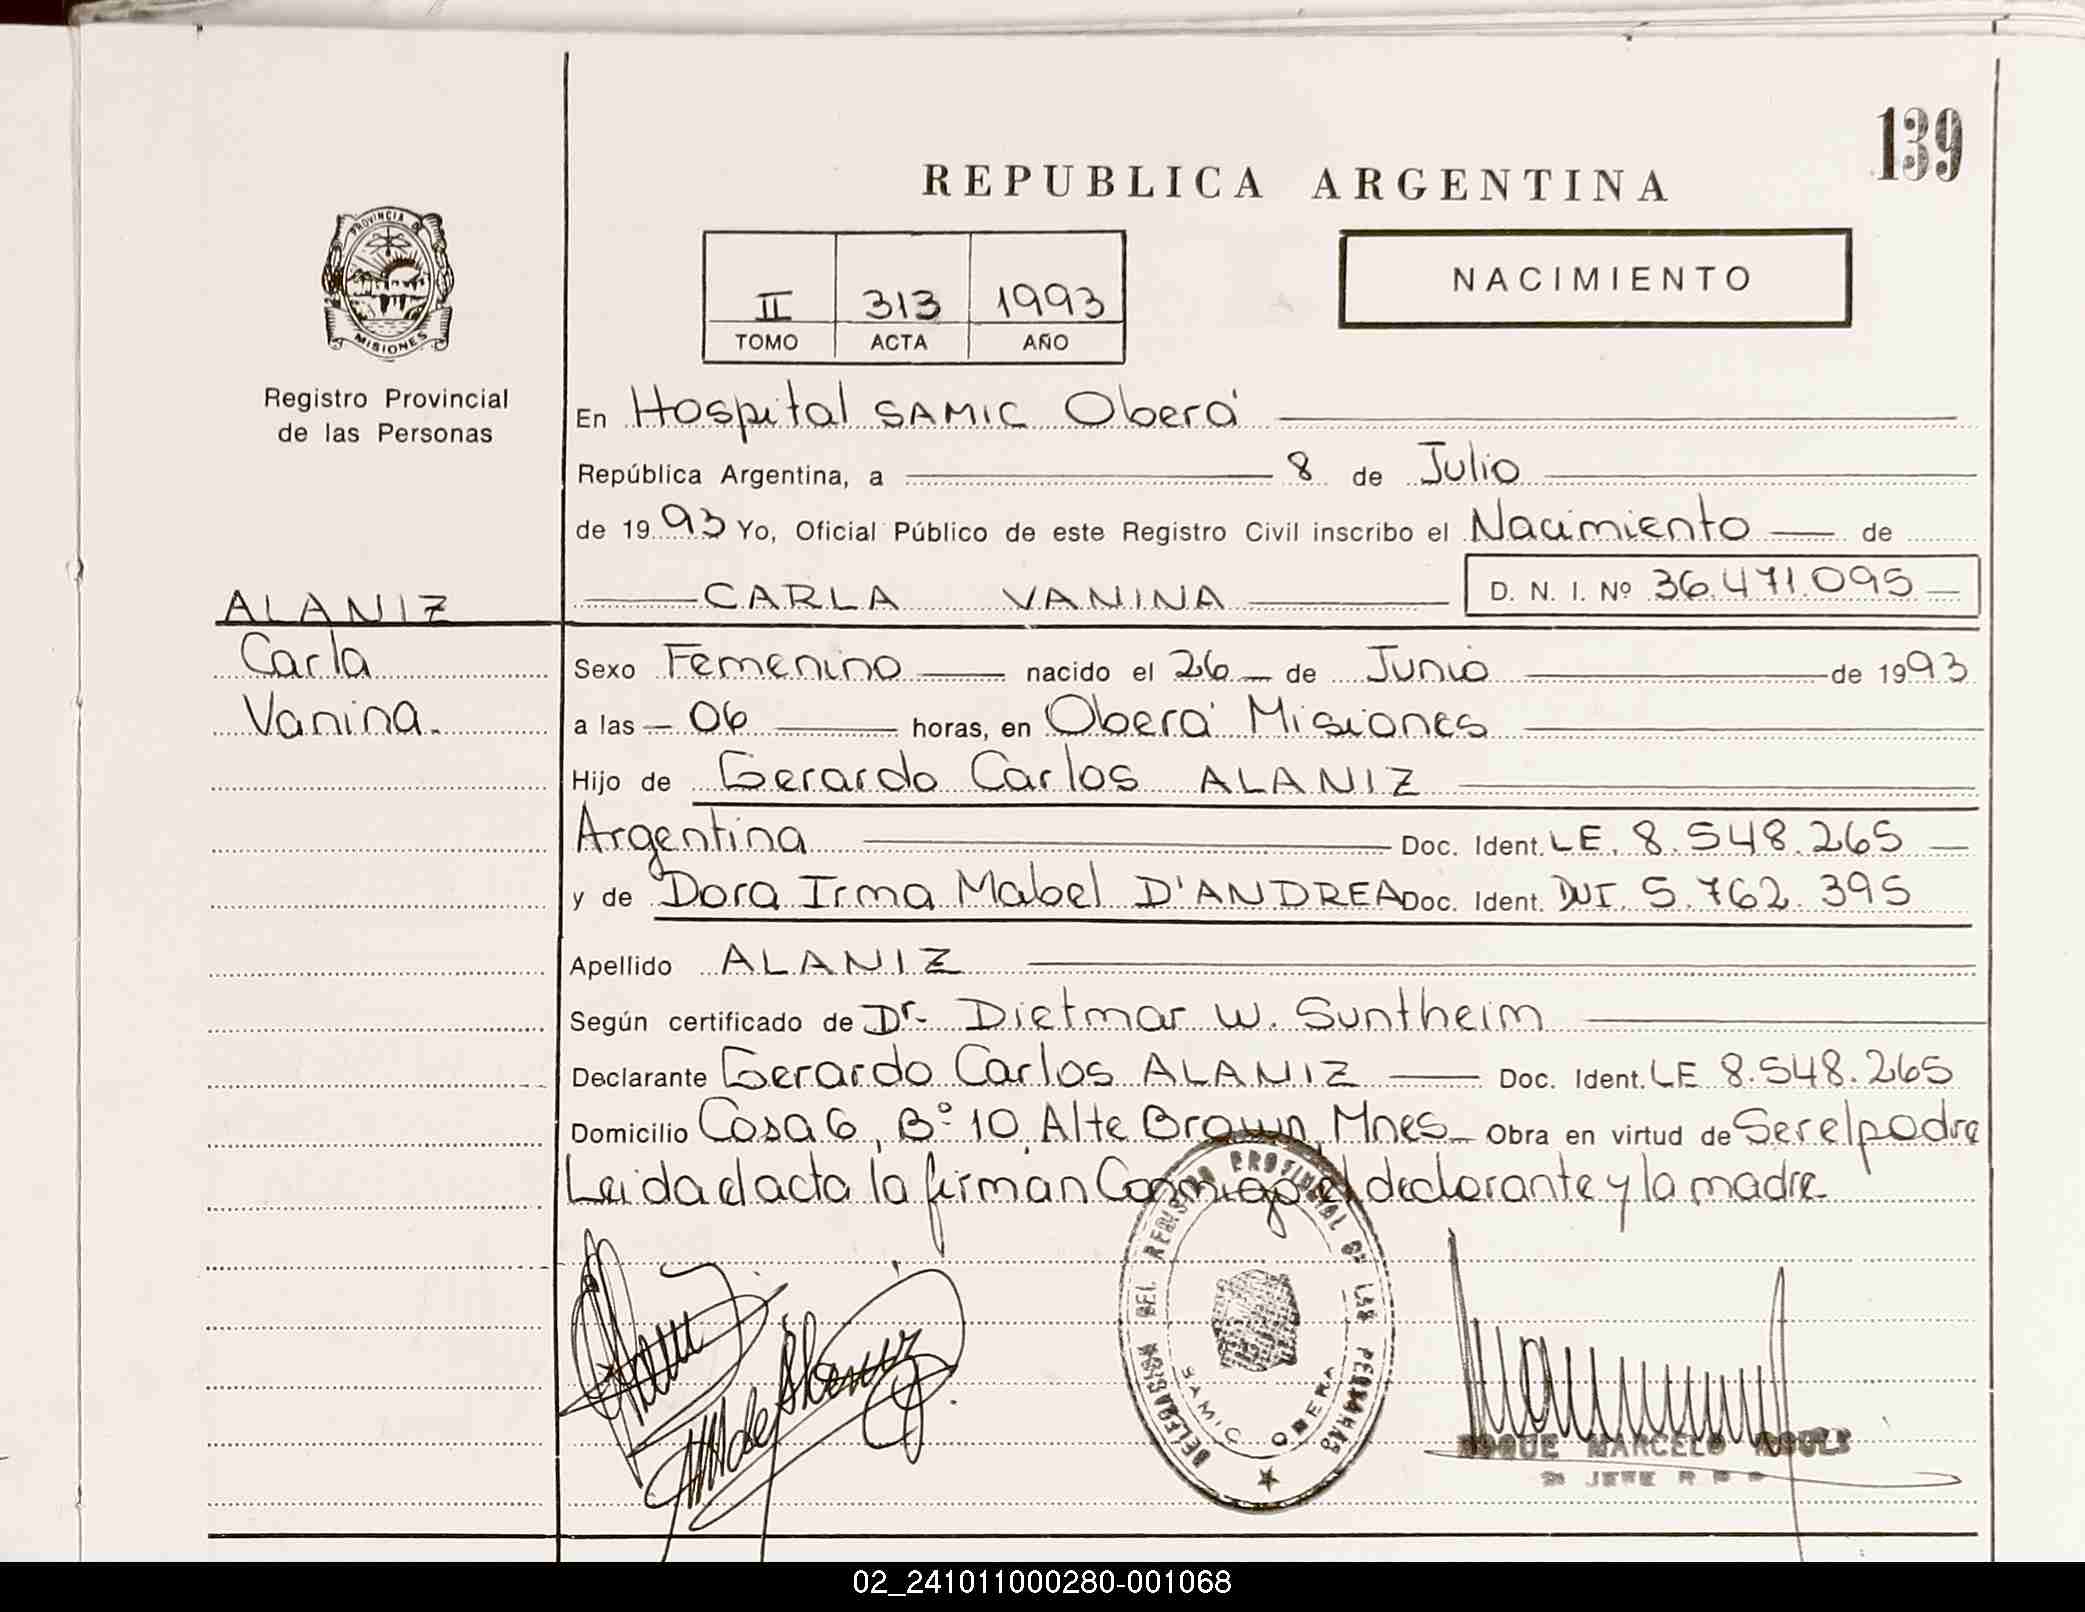 139
REPUBLICA ARGENTINA
PROVINCIA DE
MISIONES
Registro Provincial
de las Personas
NACIMIENTO
II 313 1993
TOMO ACTA AÑO
En Hospital SAMIC Oberá
República Argentina, a 8 de Julio
de 1993 Yo, Oficial Público de este Registro Civil inscribo el Nacimiento de
CARLA VANINA D. N. I. Nº 36.471.095
ALANIZ
Carla
Vanina.
Sexo Femenino nacido el 26 de Junio de 1993
a las 06 horas, en Oberá Misiones
Hijo de Gerardo Carlos ALANIZ
Argentina Doc. Ident. LE. 8.548.265
y de Dora Irma Mabel D'ANDREA Doc. Ident. DNI. 5.762.395
Apellido ALANIZ
Según certificado de Dr. Dietmar W. Suntheim
Declarante Gerardo Carlos ALANIZ Doc. Ident. LE 8.548.265
Domicilio Casa 6, Bº 10, Alte Brown, Mnes Obra en virtud de Ser el padre
Leida el acta la firman Conmigo el declarante y la madre
DELEGACION DEL REGISTRO PROVINCIAL DE LAS PERSONAS
SAMIC OBERA
de Alaniz
ROQUE MARCELO
JEFE R P P
02_241011000280-001068